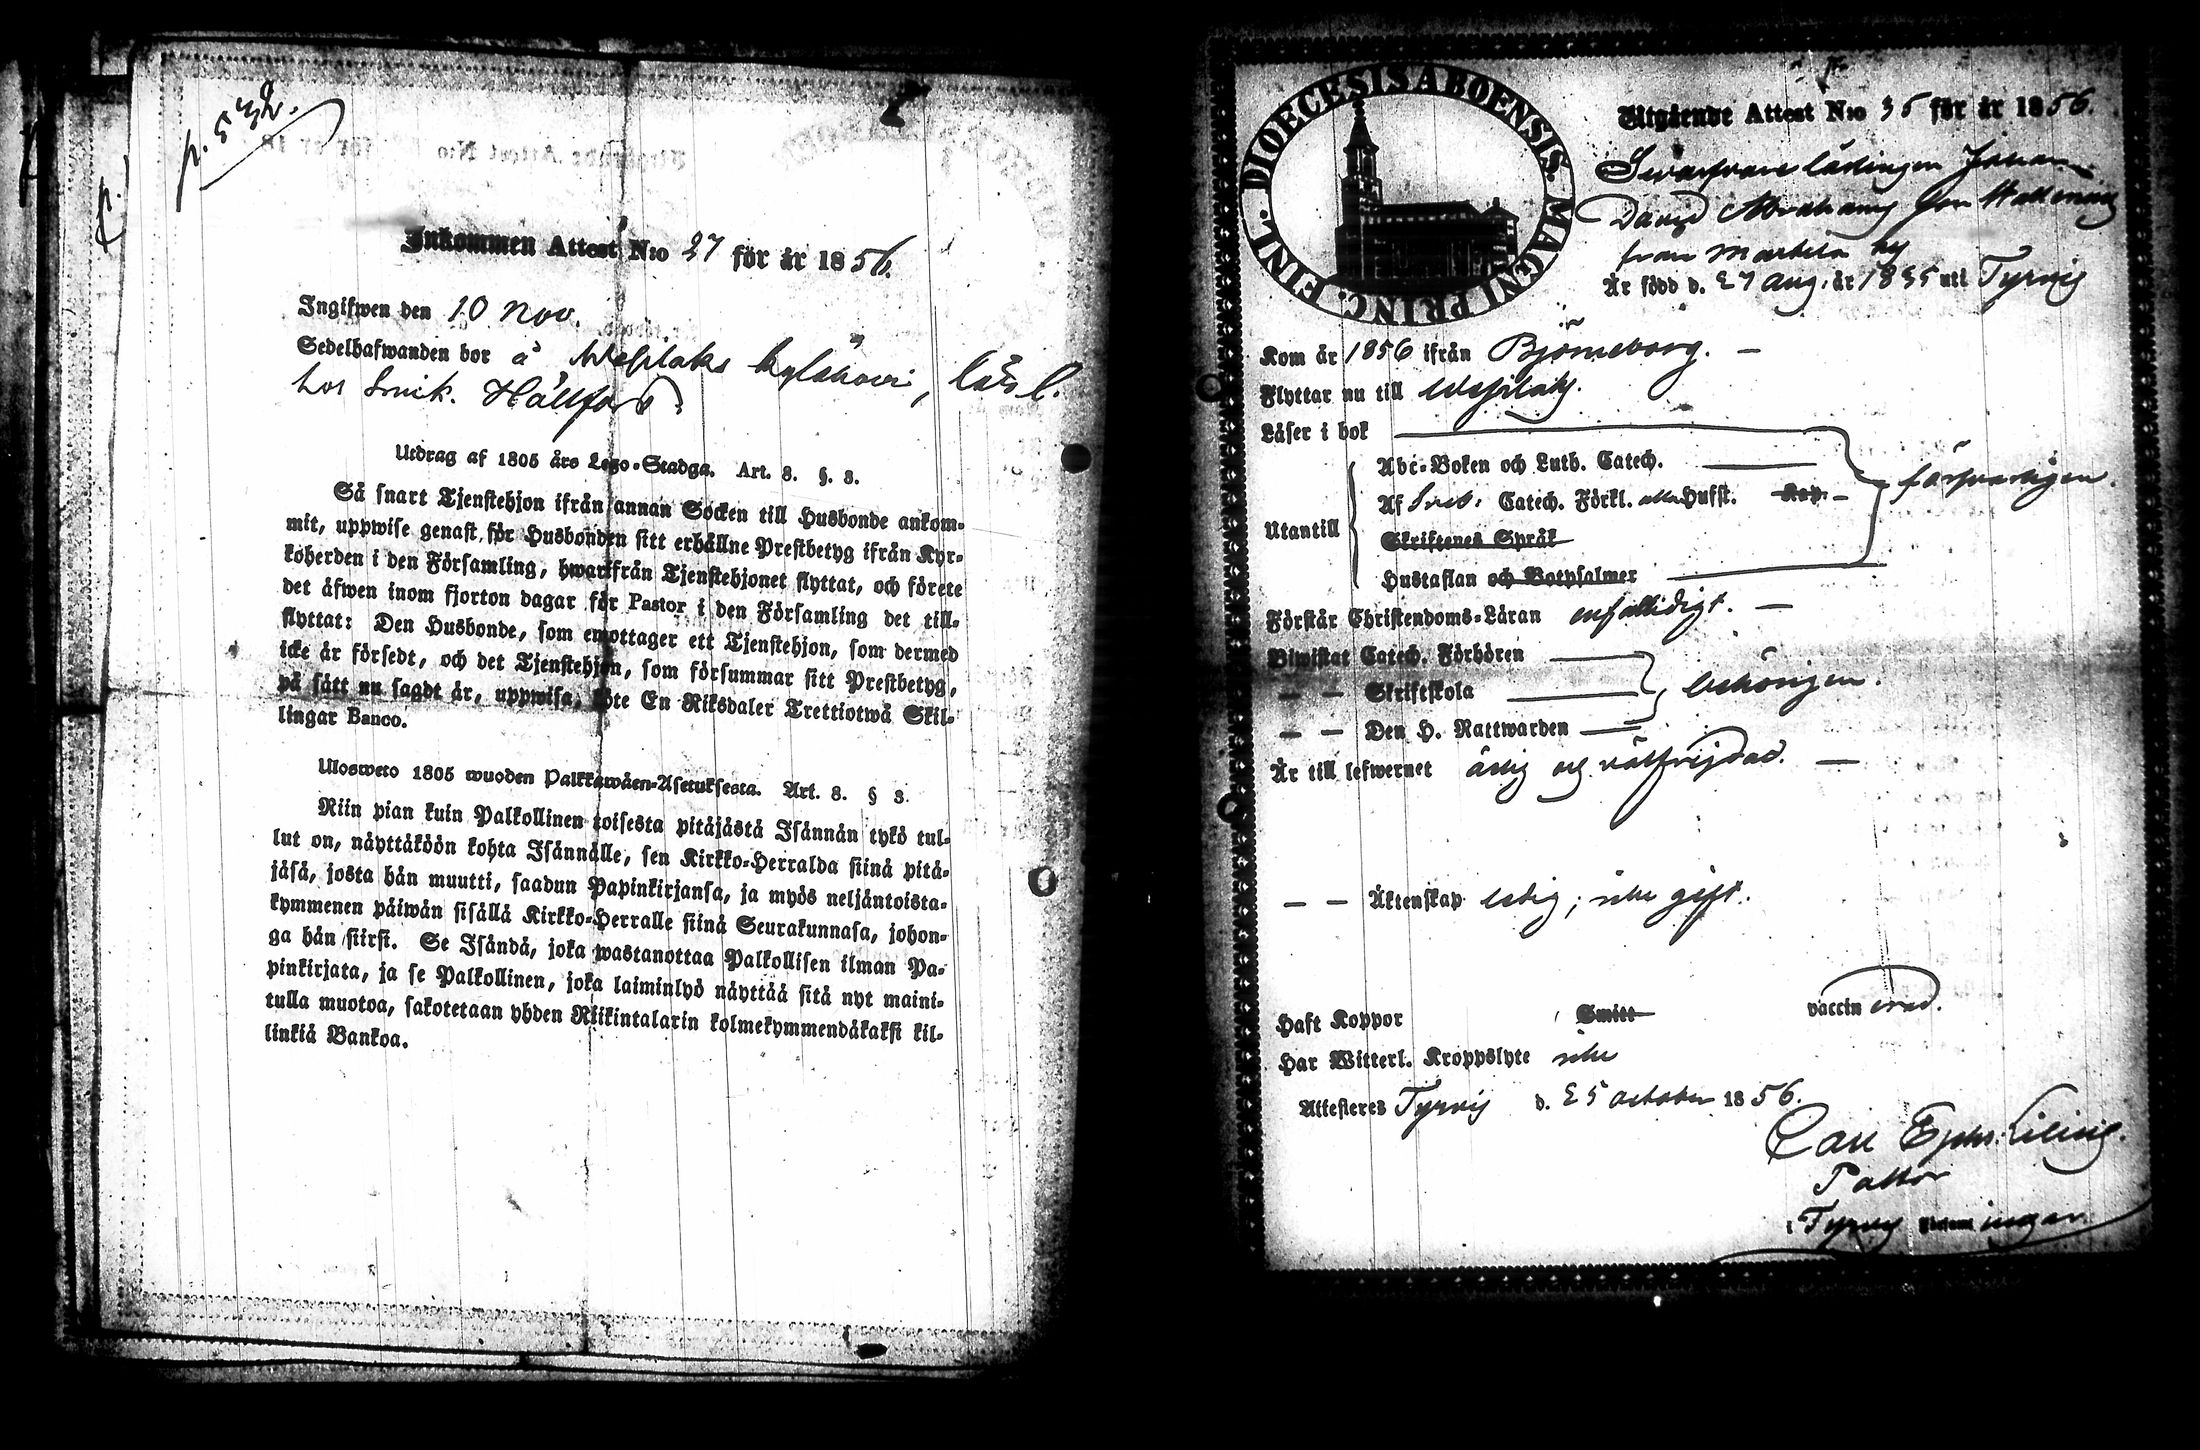 p. 532.
Inkommen Attest N:o 27 för år 1856.
Ingifwen den 10 Nov.
Sedelhafwanden bor å Wesilaks Kylskoui, lärl.
hos Smik. Hällfors.
Utdrag af 1805 års Lego-Stadga. Art. 8. §. 3.
Så snart Tjenstehjon ifrån annan Socken till Husbonde ankom-
mit, uppwise genast för Husbonden sitt erhållne Prestbetyg ifrån Kyr-
koherden i den Församling, hwarifrån Tjenstehjonet flyttat, och förete
det äfwen inom fjorton dagar för Pastor i den Församling det till-
flyttat: Den Husbonde, som emottager ett Tjenstehjon, som dermed
icke är försedt, och det Tjenstehjon, som försummar sitt Prestbetyg,
på sätt nu sagdt är, uppwisa, böte En Riksdaler Trettiotwå Skil-
lingar Banco.
Ulosweto 1805 wuoden Palkkawäen-Asetuksesta. Art. 8. § 3.
Niin pian kuin Palkollinen toisesta pitäjästä Isännän tykö tul-
lut on, näyttäköön kohta Isännälle, sen Kirkko-Herralda siinä pitä-
jäsä, josta hän muutti, saadun Papinkirjansa, ja myös neljäntoista-
kymmenen päiwän sisällä Kirkko-Herralle siinä Seurakunnasa, johon-
ga hän siirsi. Se Isändä, joka wastanottaa Palkollisen ilman Pa-
pinkirjata, ja se Palkollinen, joka laiminlyö näyttää sitä nyt maini-
tulla muotoa, sakotetaan yhden Riikintalarin kolmekymmendäkaksi kil-
linkiä Bankoa.
DIOECESIS ABOENSIS. MAGNI PRINC. FINL.
Utgående Attest N:o 35 för år 1856.
Swarfvare lärlingen Johan
David Abrahams Son Hallman
från Marttila by
Är född d. 27 Aug. år 1835 uti Tyrvis
Kom år 1856 ifrån Björneborg. –
Flyttar nu till Wesilaks.
Läser i bok
Abc-Boken och Luth. Catech.
Utantill Af Sveb. Catech. Förkl. alla Hufst. Kap. – försvarligen.
Skriftenes Språk
Hustaflan och Botpsalmer
Förstår Christendoms-Läran enfaldigt. –
Biwistat Catech. Förhören
— — Skriftskola behörigen.
— — Den H. Nattwarden
Är till lefwernet ärlig och välfrejdad. –
— — Äktenskap ledig; icke gift.
Haft Koppor Smitt vaccinerad.
Har Witterl. Kroppslyte icke
Attesteras Tyrvis d. 25 October 1856.
Carl Ephr. Lilius.
Pastor
i Tyrvis församlingar.